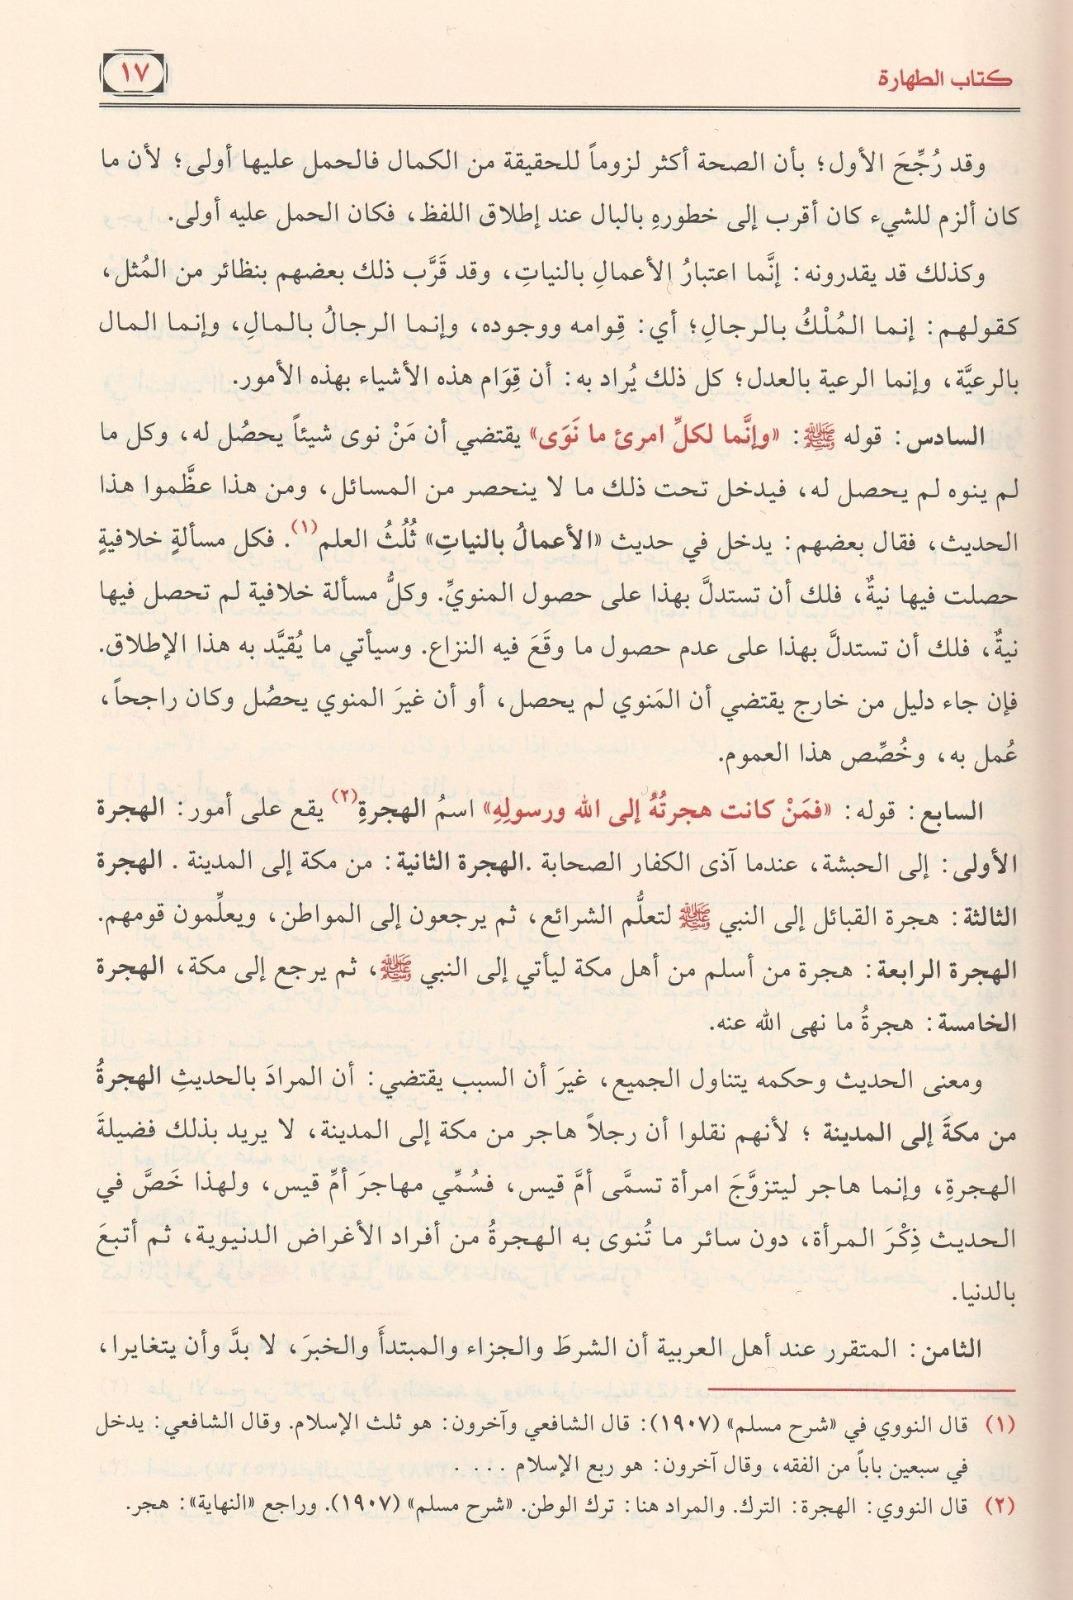 كتاب الطهارة
١٧
وقد رُجِّحَ الأول؛ بأن الصحة أكثر لزوماً للحقيقة من الكمال فالحمل عليها أولى؛ لأن ما
كان ألزم للشيء كان أقرب إلى خطورهِ بالبال عند إطلاق اللفظ، فكان الحمل عليه أولى.
وكذلك قد يقدرونه: إنَّما اعتبارُ الأعمالِ بالنياتِ، وقد قَرَّب ذلك بعضهم بنظائر من المُثل،
كقولهم: إنما المُلْكُ بالرجالِ؛ أي: قِوامه ووجوده، وإنما الرجالُ بالمالِ، وإنما المال
بالرعيَّة، وإنما الرعية بالعدل؛ كل ذلك يُراد به: أن قِوَام هذه الأشياء بهذه الأمور.
السادس: قوله ﷺ: «وإنَّما لكلِّ امرئ ما نَوَى» يقتضي أن مَنْ نوى شيئاً يحصُل له، وكل ما
لم ينوه لم يحصل له، فيدخل تحت ذلك ما لا ينحصر من المسائل، ومن هذا عظَّموا هذا
الحديث، فقال بعضهم: يدخل في حديث «الأعمالُ بالنياتِ» ثُلُثُ العلم(١). فكل مسألةٍ خلافيةٍ
حصلت فيها نيةٌ، فلك أن تستدلَّ بهذا على حصول المنويِّ. وكلُّ مسألة خلافية لم تحصل فيها
نيةٌ، فلك أن تستدلَّ بهذا على عدم حصول ما وقَعَ فيه النزاع. وسيأتي ما يُقيَّد به هذا الإطلاق.
فإن جاء دليل من خارج يقتضي أن المَنوي لم يحصل، أو أن غيرَ المنوي يحصُل وكان راجحاً،
عُمل به، وخُصِّص هذا العموم.
السابع: قوله: «فمَنْ كانت هجرتُهُ إلى الله ورسولِهِ» اسمُ الهجرةِ(٢) يقع على أمور: الهجرة
الأولى: إلى الحبشة، عندما آذى الكفار الصحابة .الهجرة الثانية: من مكة إلى المدينة . الهجرة
الثالثة: هجرة القبائل إلى النبي ﷺ لتعلُّم الشرائع، ثم يرجعون إلى المواطن، ويعلِّمون قومهم.
الهجرة الرابعة: هجرة من أسلم من أهل مكة ليأتي إلى النبي ﷺ، ثم يرجع إلى مكة، الهجرة
الخامسة: هجرةُ ما نهى الله عنه.
ومعنى الحديث وحكمه يتناول الجميع، غيرَ أن السبب يقتضي: أن المرادَ بالحديثِ الهجرةُ
من مكةَ إلى المدينة ؛ لأنهم نقلوا أن رجلاً هاجر من مكة إلى المدينة، لا يريد بذلك فضيلةَ
الهجرةِ، وإنما هاجر ليتزوَّجَ امرأة تسمَّى أمَّ قيس، فسُمِّي مهاجرَ أمِّ قيس، ولهذا خَصَّ في
الحديث ذِكْرَ المرأة، دون سائر ما تُنوى به الهجرةُ من أفراد الأغراض الدنيوية، ثم أتبعَ
بالدنيا.
الثامن: المتقرر عند أهل العربية أن الشرطَ والجزاء والمبتدأَ والخبرَ، لا بدَّ وأن يتغايرا،
(١) قال النووي في «شرح مسلم» (١٩٠٧): قال الشافعي وآخرون: هو ثلث الإسلام. وقال الشافعي: يدخل
في سبعين باباً من الفقه، وقال آخرون: هو ربع الإسلام . . . . .
(٢) قال النووي: الهجرة: الترك. والمراد هنا: ترك الوطن. «شرح مسلم» (١٩٠٧). وراجع «النهاية»: هجر.